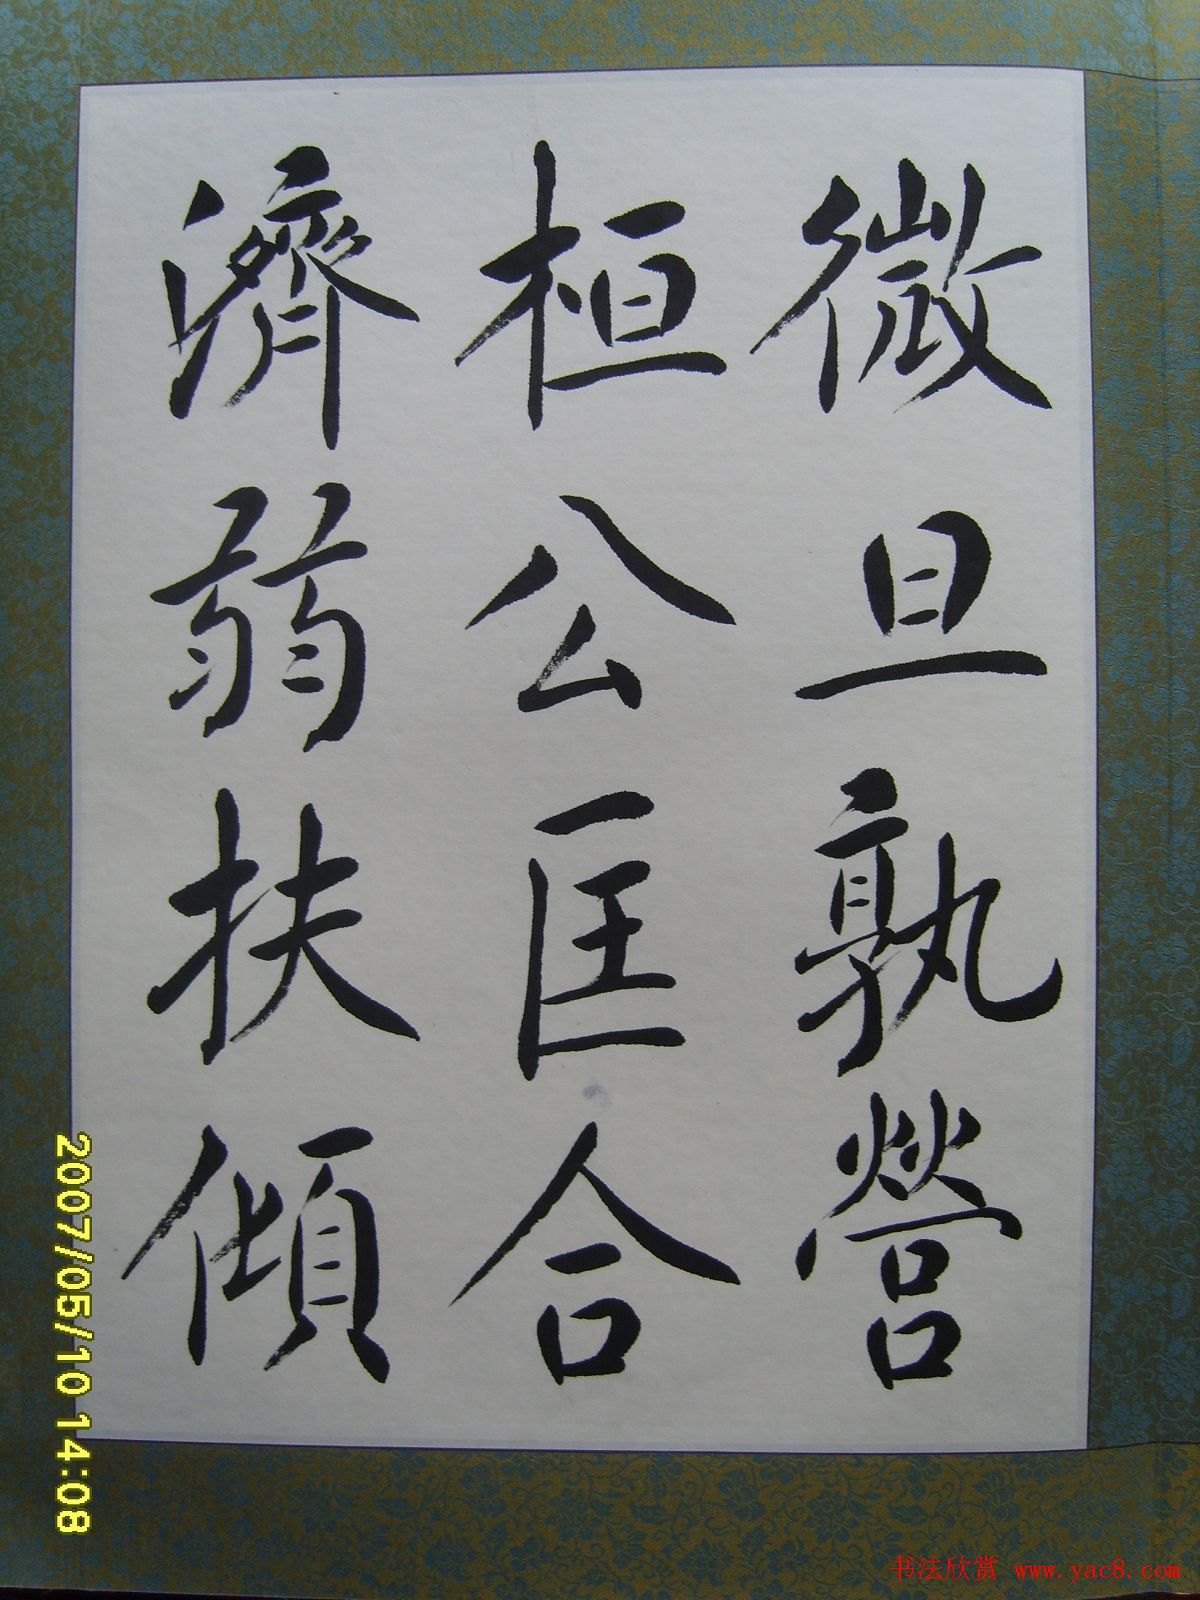 微旦孰營
桓公匡合
濟弱扶傾
2007/05/10 14:08
书法欣赏 www.yac8.com